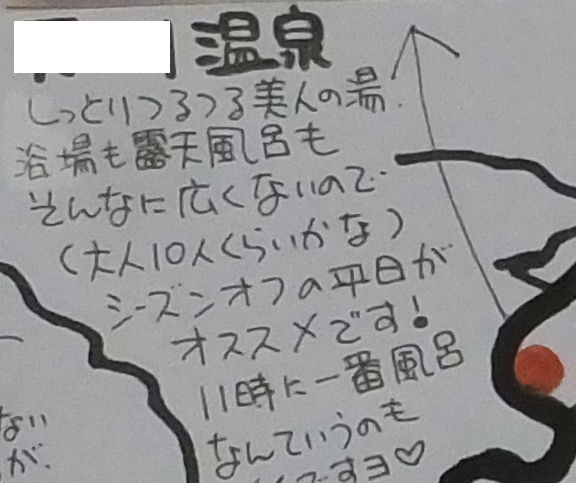 温泉
しっとりつるつる美人の湯.
浴場も露天風呂も
そんなに広くないので
(大人10人くらいかな)
シーズンオフの平日が
オススメです!
11時に一番風呂
なんていうのも
ですヨ♡
ない
が.